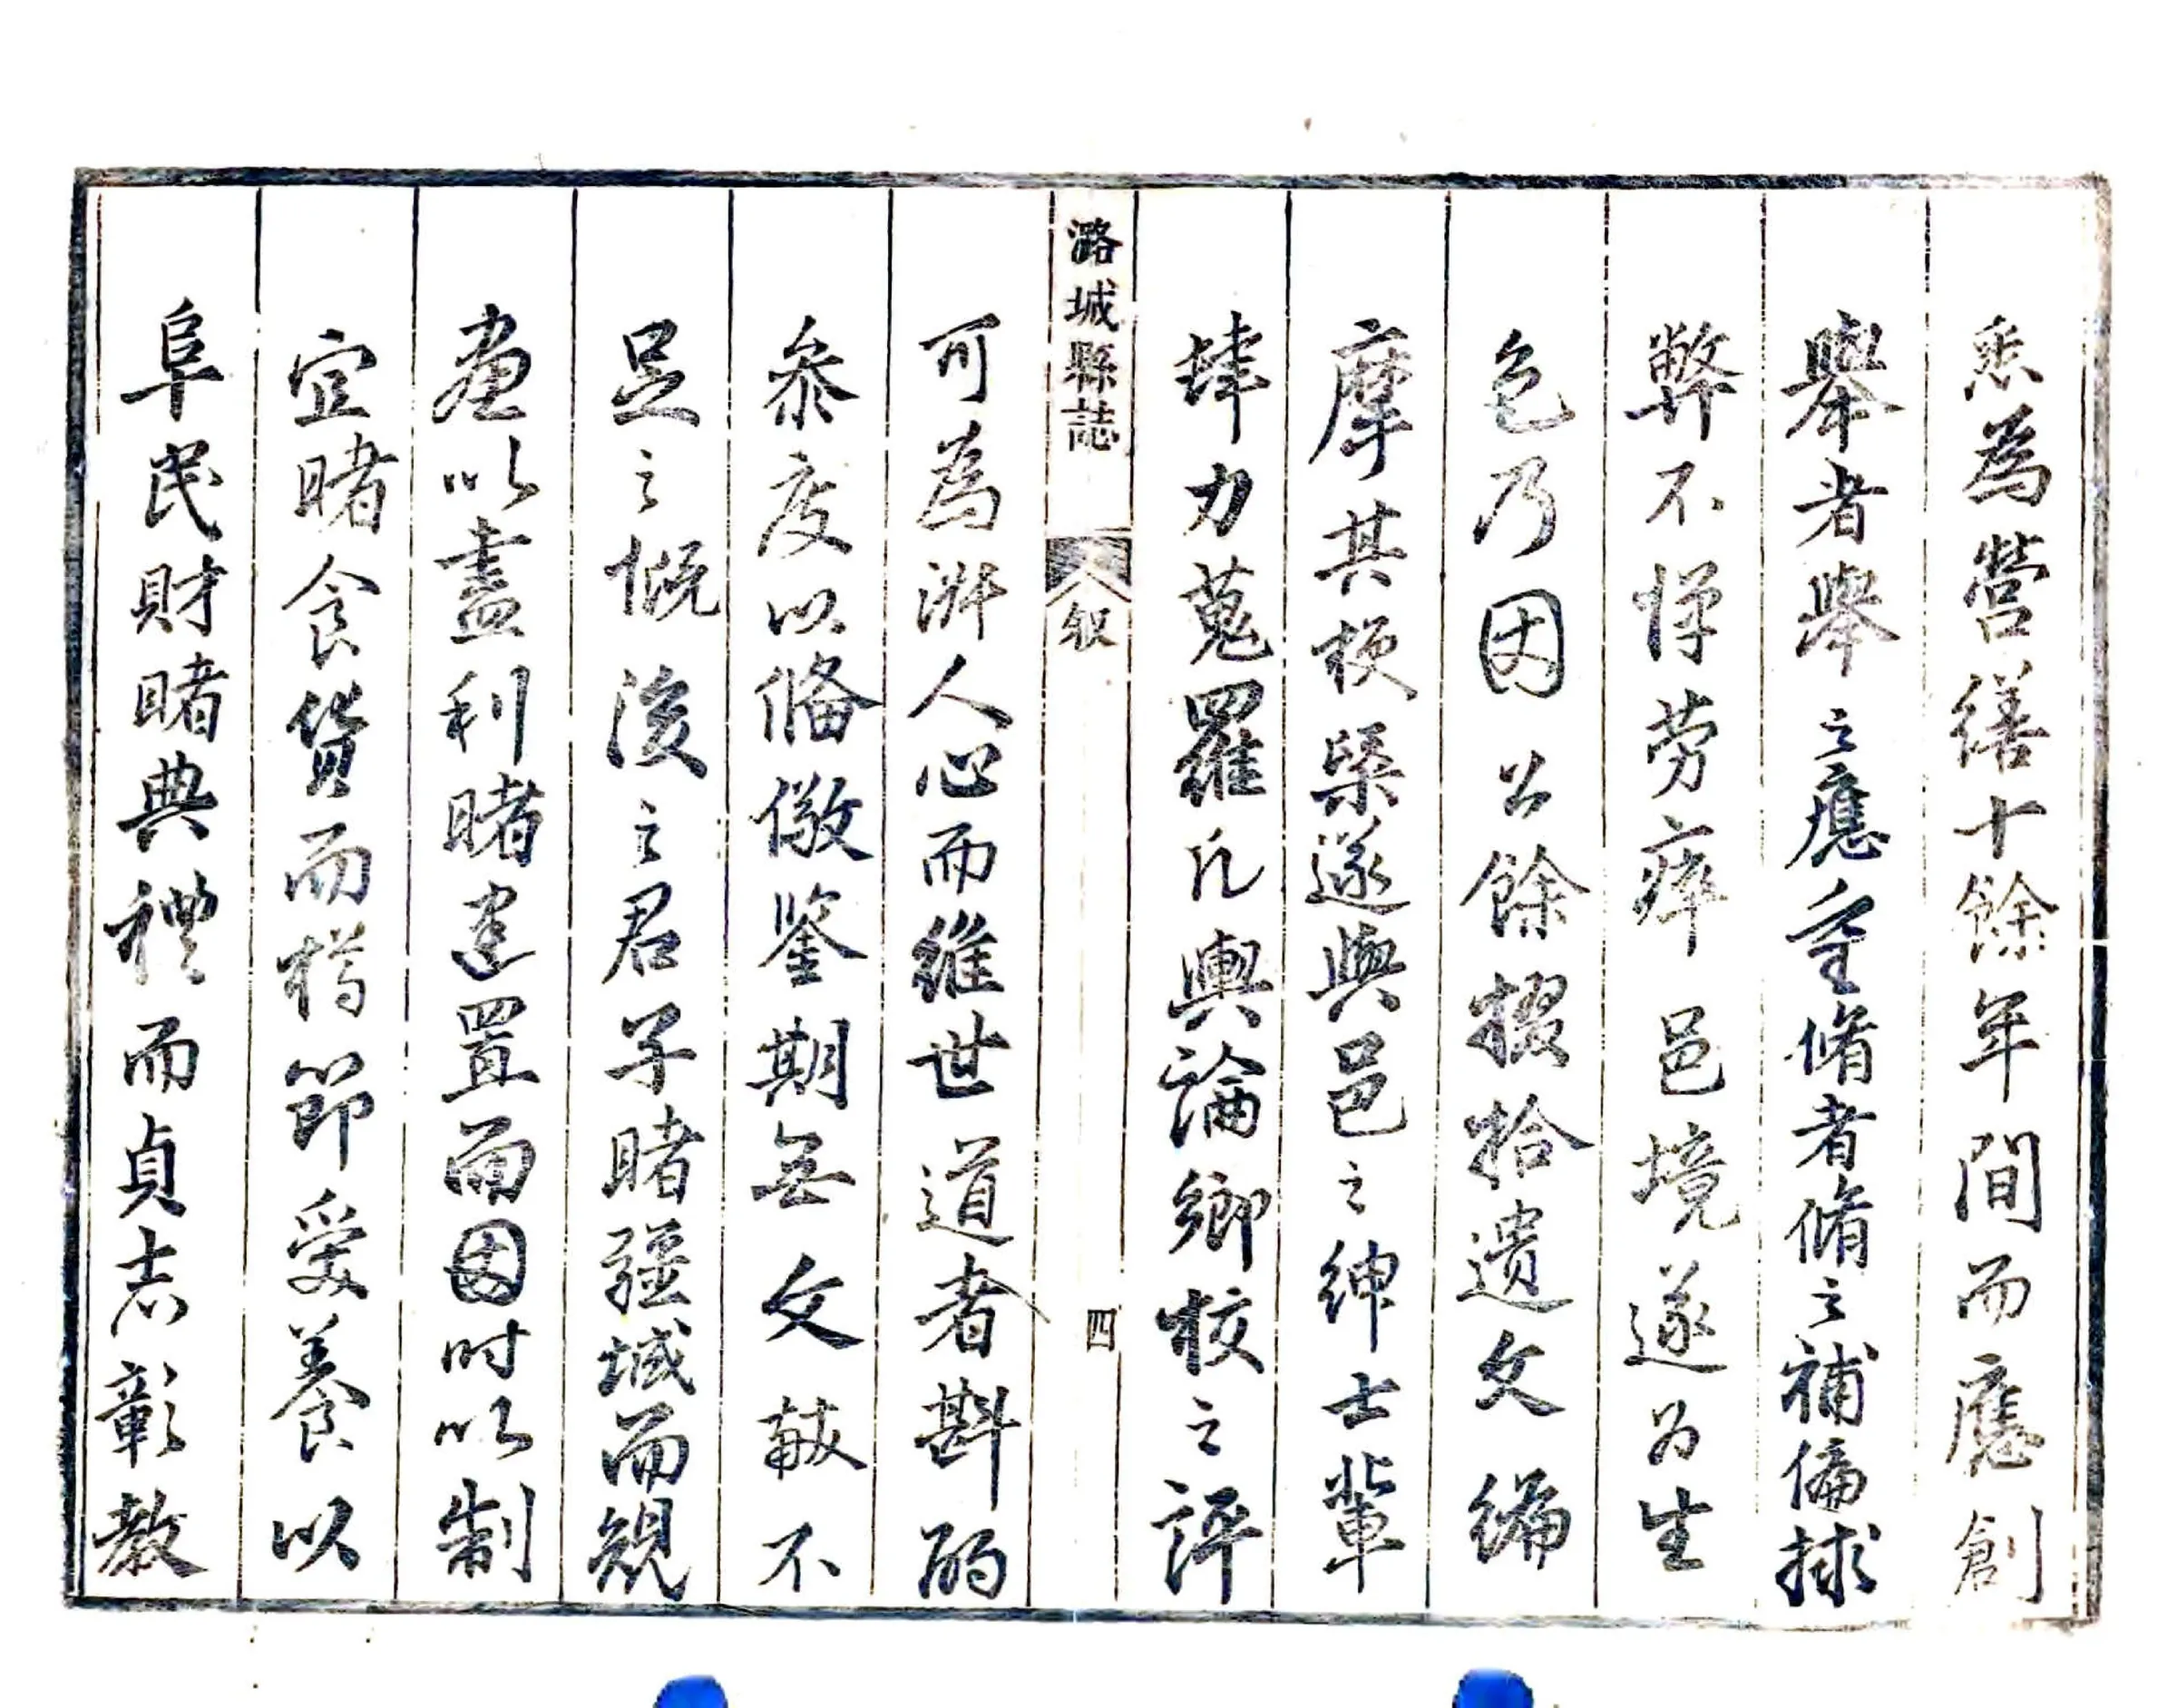 悉為營繕十餘年間而應創
舉者舉之應重脩者脩之補偏捄
弊不憚勞瘁邑境遂为生
色乃因公餘掇拾遺文編
摩其梗槩遂與邑之紳士輩
肆力蒐羅凡輿論鄉校之評
潞城縣誌
叙
四
可為淑人心而維世道者斟酌
叅度以俻儆鑒期無文献不
足之慨後之君子睹疆域而規
畫以盡利睹建置而因时以制
宜睹食貨而撙節爱養以
阜民財睹典禮而貞志彰教